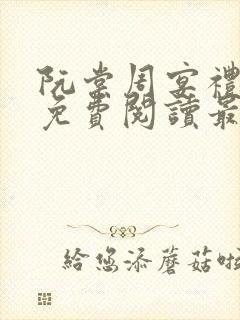 阮棠周宴禮
免費閱讀最
給您添蘑菇啦